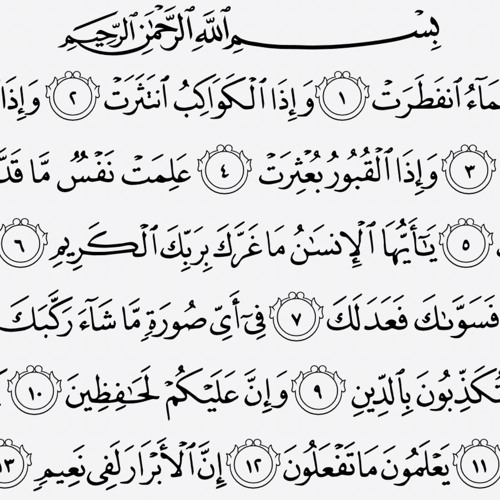 بِسْمِ ٱللَّهِ ٱلرَّحْمَٰنِ ٱلرَّحِيمِ
مَآءُ ٱنفَطَرَتْ ١ وَإِذَا ٱلْكَوَاكِبُ ٱنتَثَرَتْ ٢ وَإِذَا
٣ وَإِذَا ٱلْقُبُورُ بُعْثِرَتْ ٤ عَلِمَتْ نَفْسٌ مَّا قَدَّ
٥ يَٰٓأَيُّهَا ٱلْإِنسَٰنُ مَا غَرَّكَ بِرَبِّكَ ٱلْكَرِيمِ ٦
فَسَوَّىٰكَ فَعَدَلَكَ ٧ فِىٓ أَىِّ صُورَةٍ مَّا شَآءَ رَكَّبَكَ
تُكَذِّبُونَ بِٱلدِّينِ ٩ وَإِنَّ عَلَيْكُمْ لَحَٰفِظِينَ ١٠
١١ يَعْلَمُونَ مَا تَفْعَلُونَ ١٢ إِنَّ ٱلْأَبْرَارَ لَفِى نَعِيمٍ ١٣